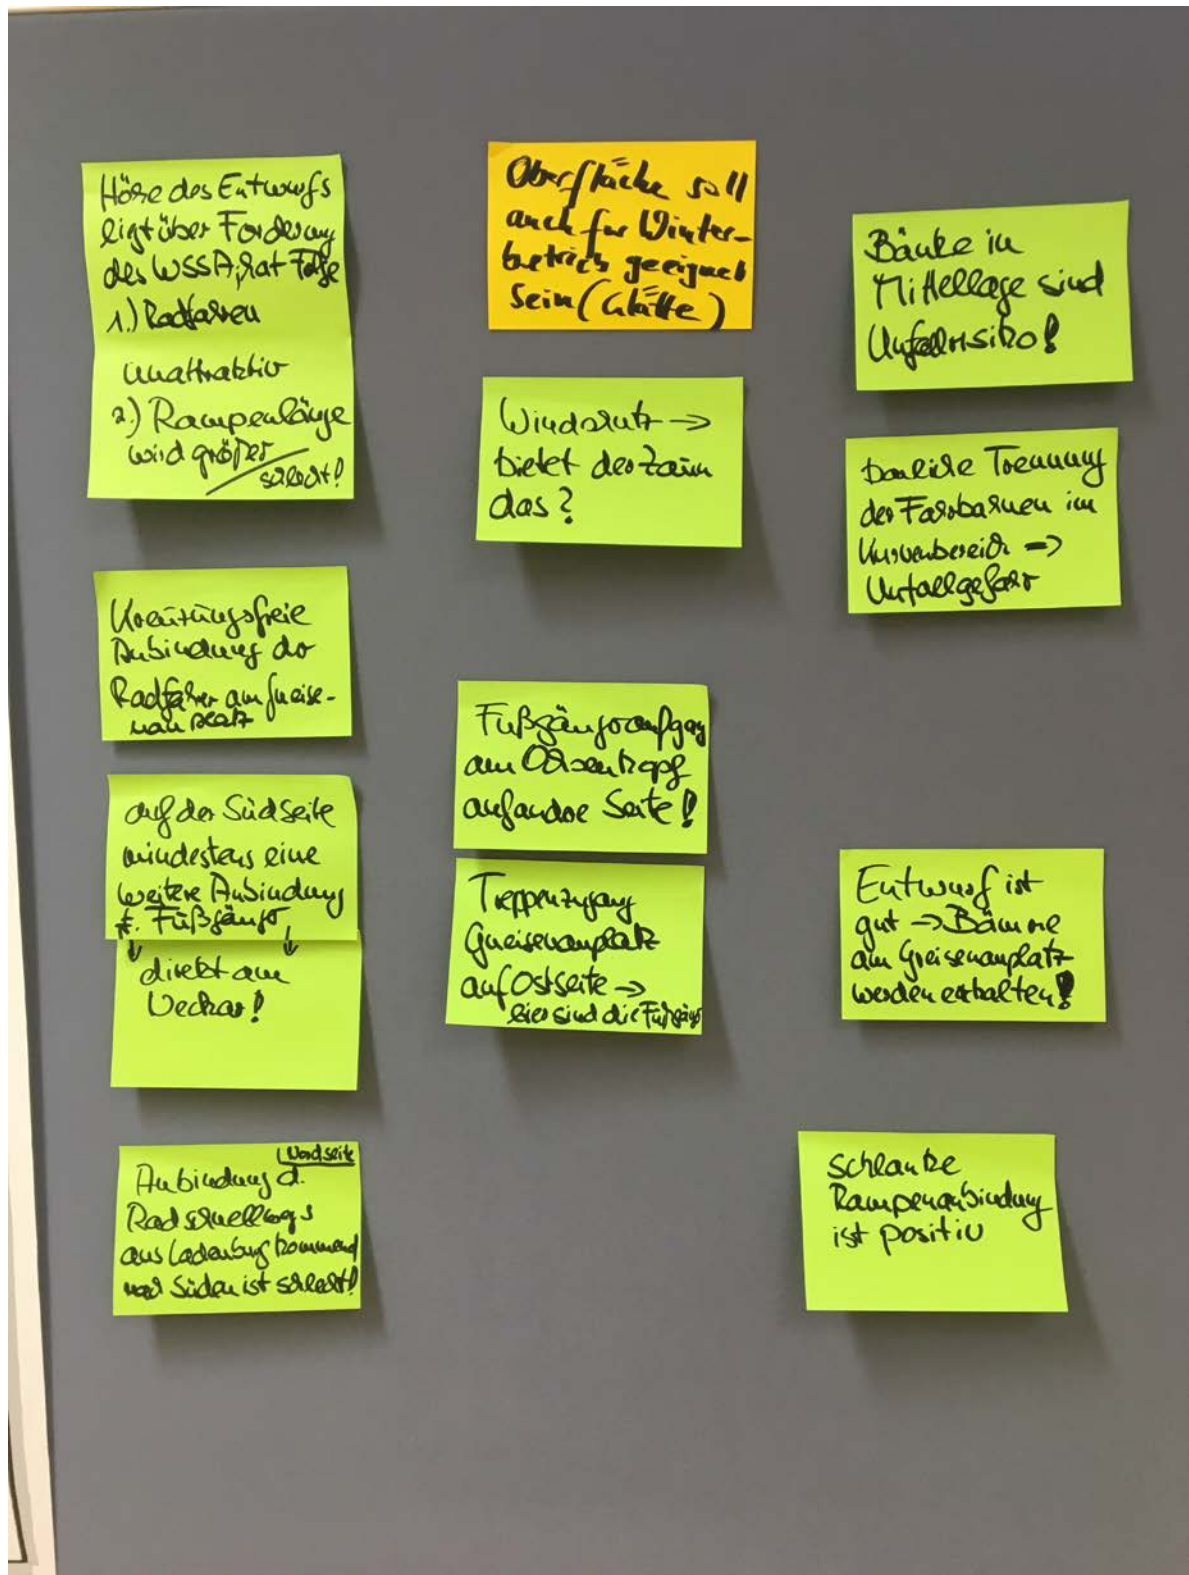 Höhe des Entwurfs
ligt über Forderung
des WSSA, hat Folge
1.) Radfahren
unattraktiv
2.) Rampenlänge
wird größer
schlecht!
Kreuzungsfreie
Anbindung der
Radfahrer am Gneise-
nauplatz
auf der Südseite
mindestens eine
weitere Anbindung
f. Fußgänger
direkt am
Neckar!
Nordseite
Anbindung d.
Radschnellwegs
aus Ladenburg kommend
nach Süden ist schlecht!
Oberfläche soll
auch für Winter-
betrieb geeignet
sein (Glätte)
Windschutz →
bietet der Zaun
das?
Fußgängeraufgang
am Ochsenkopf
auf andre Seite!
Treppenzugang
Gneisenauplatz
auf Ostseite →
hier sind die Fußgänger
Bänke in
Mittellage sind
Unfallrisiko!
bauliche Trennung
der Fahrbahnen im
Kurvenbereich →
Unfallgefahr
Entwurf ist
gut → Bäume
am Gneisenauplatz
werden erhalten!
schlanke
Rampenanbindung
ist positiv